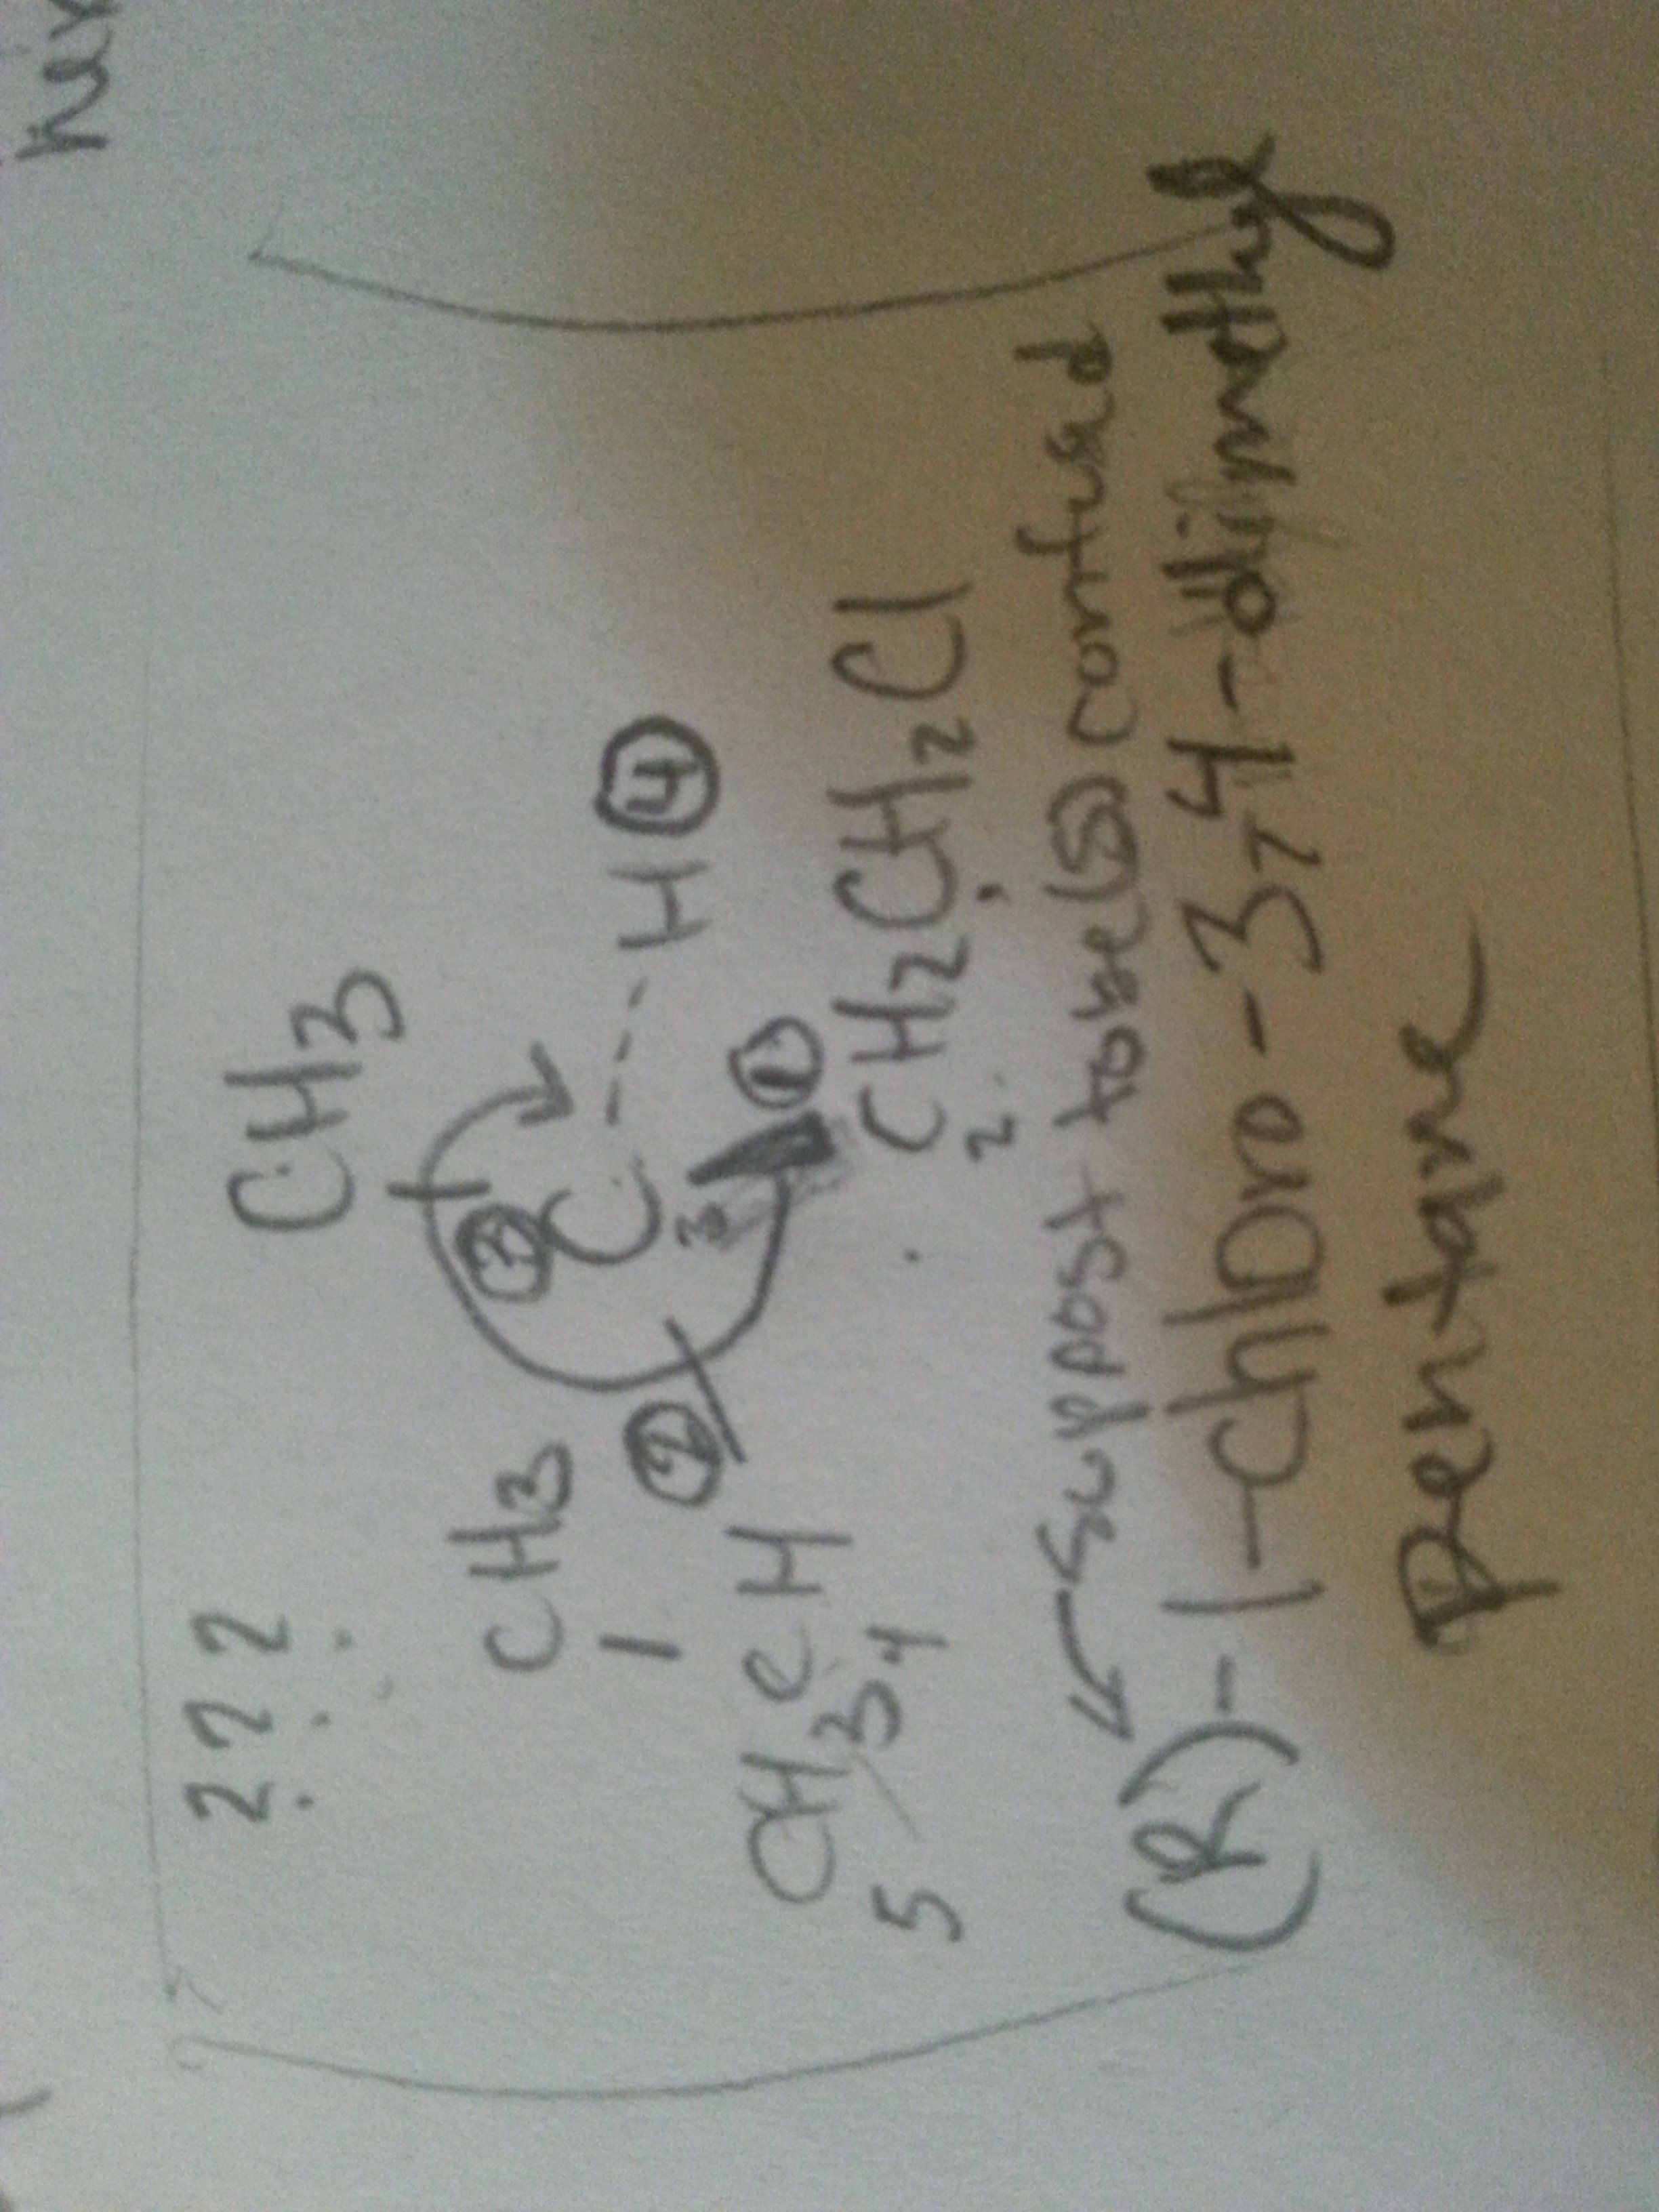 ? ? ?
CH3
CH3
|
③
C --- H ④
②
3
①
CH3 CH
5 4
CH2CH2Cl
2
suppost to be (S) confused
(R)-1-chloro-3,4-dimethyl
Pentane